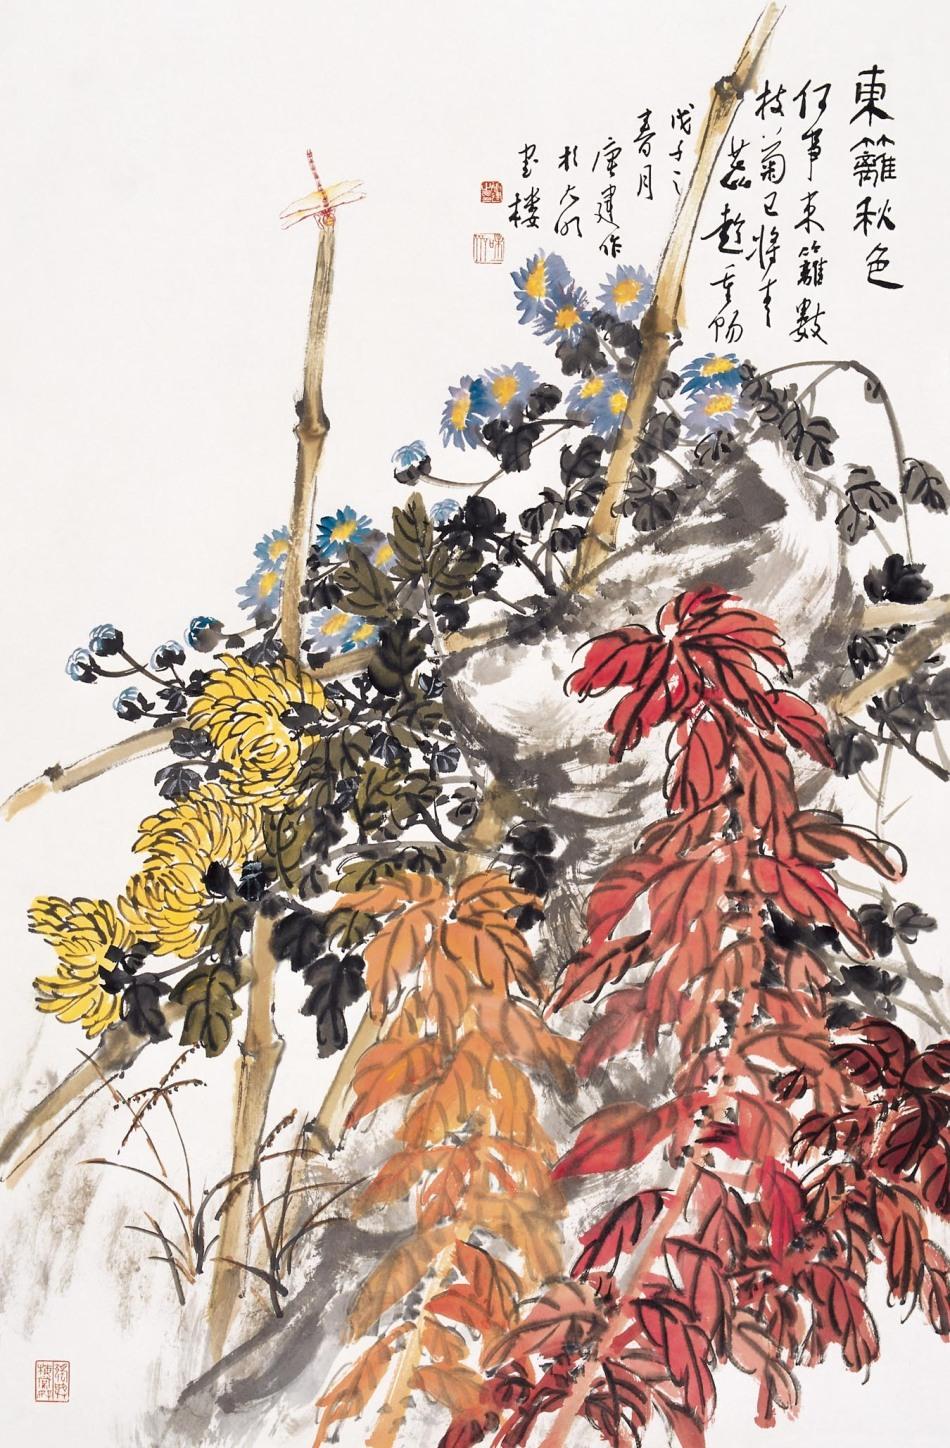 東籬秋色
何事東籬數
枝菊已將青
蕊趁重陽
戊子之
春月
唐建作
於大風
畫樓